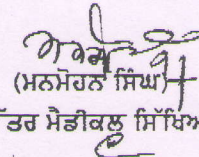 (ਮਨਮੋਹਨ ਸਿੰਘ)
ਤਰ ਮੈਡੀਕਲ ਸਿੱਖਿਅ